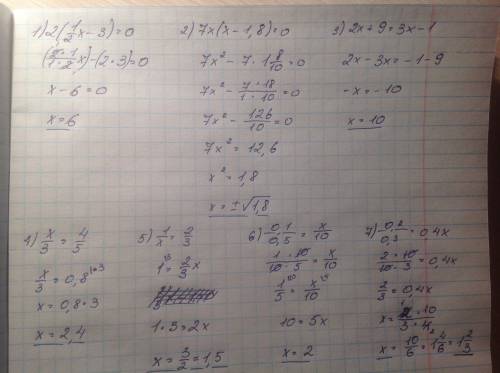 1) 2(1/2x - 3) = 0
(2·1/1·2 x) - (2·3) = 0
x - 6 = 0
x = 6
2) 7x(x - 1,8) = 0
7x² - 7·1 8/10 = 0
7x² - 7·18/1·10 = 0
7x² - 126/10 = 0
7x² = 12,6
x² = 1,8
x = ±√1,8
3) 2x + 9 = 3x - 1
2x - 3x = -1 - 9
-x = -10
x = 10
4) x/3 = 4/5
x/3 = 0,8 |·3
x = 0,8·3
x = 2,4
5) 1/x = 2/3
1 = 2/3 x
1·3 = 2x
x = 3/2 = 1,5
6) 0,1/0,5 = x/10
1·10/10·5 = x/10
1/5 = x/10
10 = 5x
x = 2
7) 0,2/0,3 = 0,4x
2·10/10·3 = 0,4x
2/3 = 0,4x
x = 2·10/3·4
x = 10/6 = 1 4/6 = 1 2/3